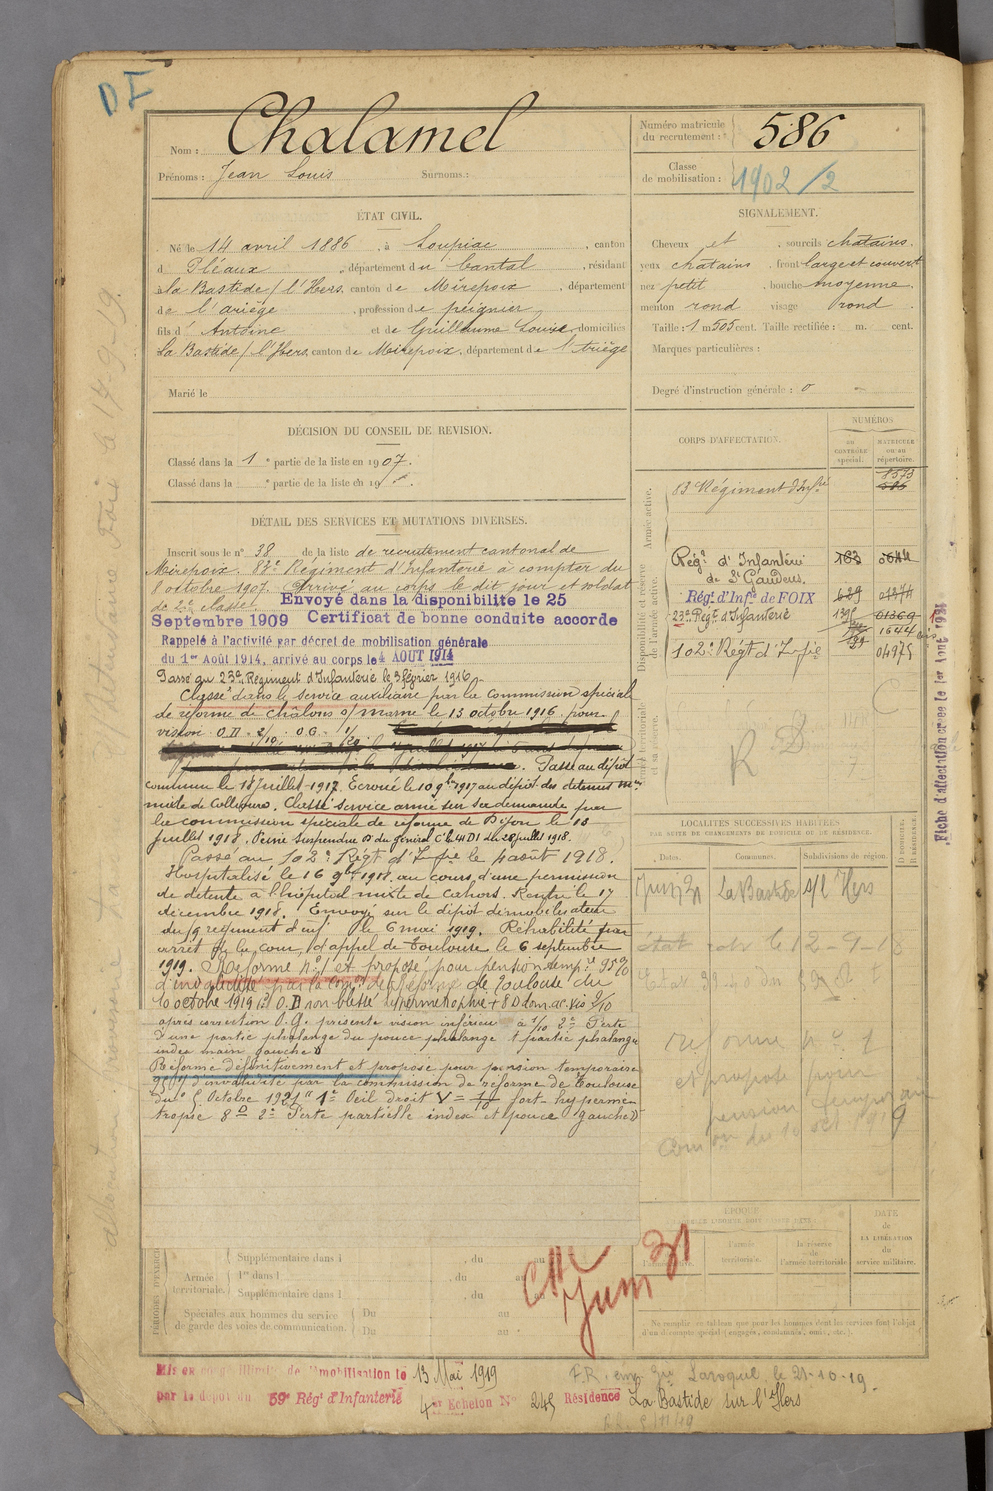 DI
Nom : Chalamel
Prénoms : Jean Louis Surnoms :
Numéro matricule du recrutement : 586
Classe de mobilisation : 1902/2
ÉTAT CIVIL.
Né le 14 avril 1886, à Loupiac, canton
d Pléaux, département du Cantal, résidant
à la Bastide s/ l'Hers, canton de Mirepoix, département
de l'ariège, profession de peignier
fils d' Antoine et de Guillaume Louise, domiciliés
La Bastide s/ l'Hers, canton de Mirepoix, département de l'Ariège
Marié le
SIGNALEMENT.
Cheveux et , sourcils chatains.
yeux chatains , front large et couvert
nez petit , bouche moyenne.
menton rond visage rond
Taille : 1 m 505 cent. Taille rectifiée : m. cent.
Marques particulières :
Degré d'instruction générale : 0
DÉCISION DU CONSEIL DE REVISION.
Classé dans la 1e partie de la liste en 1907.
Classé dans la e partie de la liste en 19
DÉTAIL DES SERVICES ET MUTATIONS DIVERSES.
Inscrit sous le n° 38 de la liste de recrutement cantonal de
Mirepoix. 83e Régiment d'Infanterie à compter du
8 octobre 1907. Arrivé au corps le dit jour et soldat
de 2e classe. Envoyé dans la disponibilite le 25
Septembre 1909 Certificat de bonne conduite accorde
Rappelé à l'activité par décret de mobilisation générale
du 1er Août 1914, arrivé au corps le 4 AOUT 1914
Passé au 23e Régiment d'Infanterie le 3 février 1916.
Classé dans le service auxiliaire par la Commission spéciale
de réforme de Châlons s/ marne le 13 octobre 1916 pour
vision O.D. 2/10 O.G. 1/20
Passe au dépôt
commun le 18 Juillet 1917. Ecroué le 10 9bre 1917 au dépôt des detenus
mixte de Collioure. Classé service armé sur sa demande par
la commission spéciale de réforme de Dijon le 13
Juillet 1918. Peine Suspendue D du général Ct la 41 DI du 28 juillet 1918.
Passé au 102e Régt d'Infie le 4 août 1918.
Hospitalisé le 16 9bre 1918 au cours d'une permission
de détente à l'hôpital mixte de Cahors. Rentré le 17
décembre 1918. Envoyé sur le dépôt démobilisateur
du 59 régiment d'inf le 6 mai 1919. Réhabilité par
arrêt de la cour d'appel de Toulouse le 6 septembre
1919. Réformé n° 1 et proposé pour pension tempre 95%
d'invalidité par la com. de réforme de Toulouse du
10 octobre 1919 1° O.D non blessé hypermétrophie + 8 D dom. ac. vis 2/10
après correction O.G. présente vision inférieure à 1/10 2° Perte
d'une partie phalange du pouce phalange & partie phalange
index main gauche D
Réformé définitivement et proposé pour pension temporaire
95% d'invalidité par la commission de réforme de Toulouse
du 5 Octobre 1921 1° Oeil droit V = 1/10 fort hypermé-
tropie 8 D 2° Perte partielle index et pouce gauche D
CORPS D'AFFECTATION.
NUMÉROS
AU CONTROLE spécial.
MATRICULE ou au répertoire.
Armée active.
83 Régiment d'Infie 1573
Disponibilité et réserve de l'armée active.
Régt d'Infanterie de St Gaudens. 163
Régt d'Infie de FOIX
23e Régt d'Infanterie 01369
1644 bis
102e Régt d'Infie 04975
R. D
LOCALITÉS SUCCESSIVES HABITÉES
PAR SUITE DE CHANGEMENTS DE DOMICILE OU DE RÉSIDENCE.
Dates. Communes. Subdivisions de région. D DOMICILE. R RÉSIDENCE.
Juin 31 La Bastide s/l Hers
réformé n° 1
et proposé pour
pension temporaire
Com on du 10 oct 1919
ÉPOQUE
l'armée territoriale.
la réserve de l'armée territoriale
DATE de LA LIBÉRATION du service militaire.
Ne remplir ce tableau que pour les hommes dont les services font l'objet
d'un décompte spécial (engagés, condamnés, omis, etc.).
PÉRIODES D'EXERCICES
Armée territoriale.
Supplémentaire dans l , du au
1re dans l , du au
Supplémentaire dans l , du au
Spéciales aux hommes du service de garde des voies de communication.
Du au
Du au
Juin 31
Mis en congé illimité de démobilisation le 13 Mai 1919
par le dépôt du 59e Régt d'Infanterie 4er Echelon N° 245 Résidence La Bastide sur l'Hers
Laroque, le 21-10-19.
Fiche d'affectation créée le 1er Août 1931